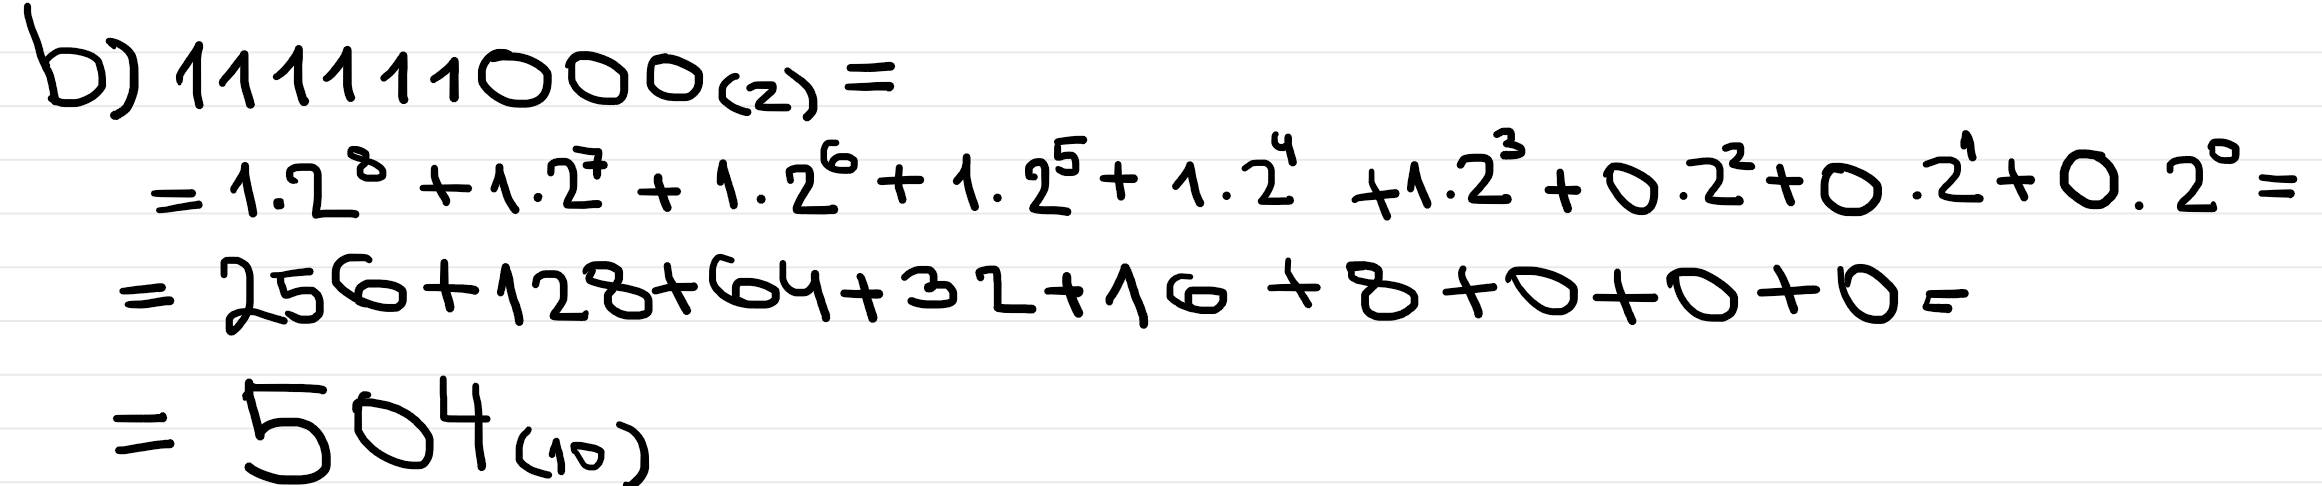 b) 111111000₍₂₎ =
= 1·2⁸ + 1·2⁷ + 1·2⁶ + 1·2⁵ + 1·2⁴ + 1·2³ + 0·2² + 0·2¹ + 0·2⁰ =
= 256 + 128 + 64 + 32 + 16 + 8 + 0 + 0 + 0 =
= 504₍₁₀₎